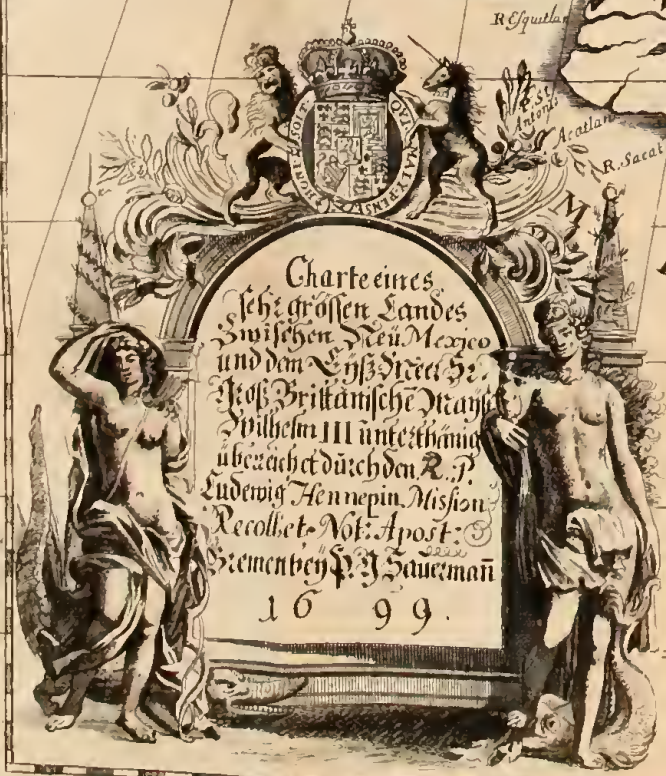 R Esquitlan
St
Antonis
Acatlan
R. Sacat
M
HONI SOIT QUI MAL Y PENSE
Charte eines
sehr grössen Landes
Zwischen Neü Mexico
und dem Eÿß Meer Sr
Groß Brittanischē Mayst
Wilhelm III ünterthänig
überreichet dürch den R. P.
Ludewig Hennepin Mission
Recollet. Not: Apost:
Bremen beÿ P. J Sauermañ
1699.